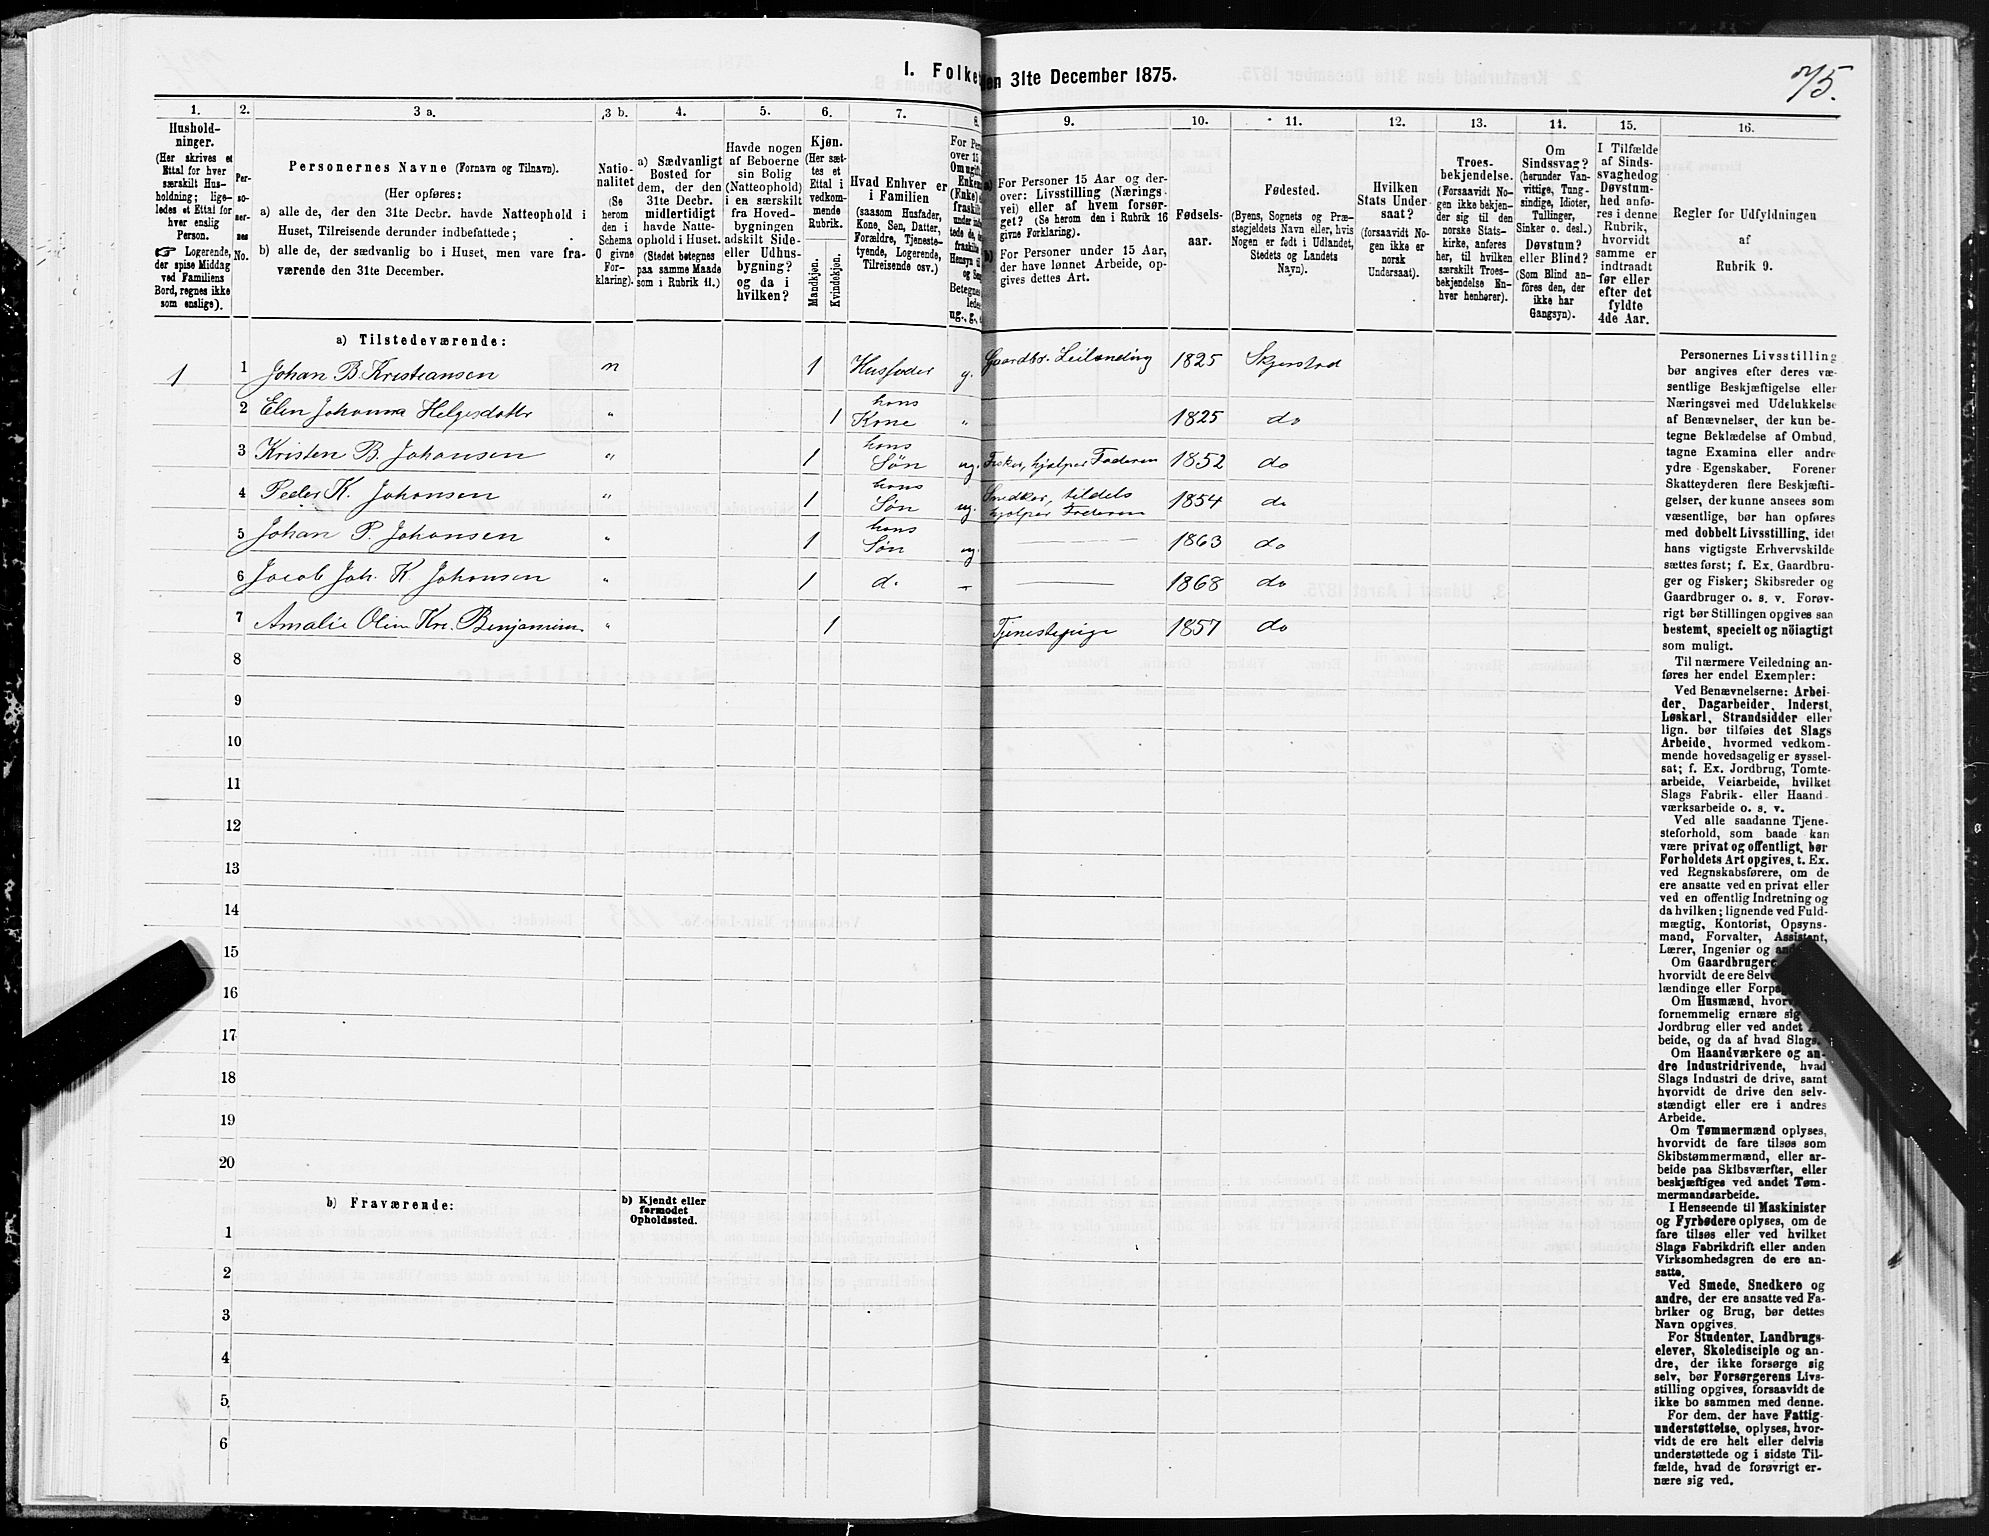 I. Folke
den 31te December 1875.
75.
1.
2.
3 a.
3 b.
4.
5.
6.
7.
8.
9.
10.
11.
12.
13.
14.
15.
16.
Hushold-
ninger.
(Her skrives et
Ettal for hver
særskilt Hus-
holdning; lige-
ledes et Ettal for
hver enslig
Person.
☞ Logerende,
der spise Middag
ved Familiens
Bord, regnes ikke
som enslige).
Per-
so-
ner-
nes
No.
Personernes Navne (Fornavn og Tilnavn).
(Her opføres:
a) alle de, der den 31te Decbr. havde Natteophold i
Huset, Tilreisende derunder indbefattede;
b) alle de, der sædvanlig bo i Huset, men vare fra-
værende den 31te December.
Natio-
nalitet
(Se
herom
den i
Schema
O givne
For-
klaring).
a) Sædvanligt
Bosted for
dem, der den
31te Decbr.
midlertidigt
havde Natte-
ophold i Huset.
(Stedet betegnes
paa samme Maade
som i Rubrik 11.)
Havde nogen
af Beboerne
sin Bolig
(Natteophold)
i en særskilt
fra Hoved-
bygningen
adskilt Side-
eller Udhus-
bygning?
og da i
hvilken?
Kjøn.
(Her sæt-
tes et
Ettal i
vedkom-
mende
Rubrik.
Mandkjøn.
Kvindekjøn.
Hvad Enhver er
i Familien
(saasom Husfader,
Kone, Søn, Datter,
Forældre, Tjeneste-
tyende, Logerende,
Tilreisende osv.)
For Pers
over 15
Om ugift,
Enken
(Enke)
fraskilt
Betegnes
ledes
ug., g.,
a)
For Personer 15 Aar og der-
over: Livsstilling (Nærings-
vei) eller af hvem forsør-
get? (Se herom den i Rubrik 16
givne Forklaring).
b)
For Personer under 15 Aar,
der have lønnet Arbeide, op-
gives dettes Art.
Fødsels-
aar.
Fødested.
(Byens, Sognets og Præ-
stegjeldets Navn eller, hvis
Nogen er født i Udlandet,
Stedets og Landets
Navn).
Hvilken
Stats Under-
saat?
(forsaavidt No-
gen ikke er
norsk
Undersaat).
Troes-
bekjendelse.
(Forsaavidt No-
gen ikke bekjen-
der sig til den
norske Stats-
kirke, anføres
her, til hvilken
særskilt Troes-
bekjendelse En-
hver henhører).
Om
Sindssvag?
(herunder Van-
vittige, Tung-
sindige, Idioter,
Tullinger,
Sinker o. desl.)
Døvstum?
eller Blind?
(Som Blind an-
føres den, der
ikke har
Gangsyn).
I Tilfælde
af Sinds-
svaghed og
Døvstum-
hed anfø-
res i denne
Rubrik,
hvorvidt
samme er
indtraadt
før eller
efter det
fyldte
4de Aar.
Regler for Udfyldningen
af
Rubrik 9.
a) Tilstedeværende:
1 1 Johan B. Kristiansen n 1 Husfader g. Gaardbr. Leilending 1825 Skjerstad
2 Elen Johanna Helgesdatter " 1 hans Kone " 1825 do
3 Kristen B. Johansen " 1 hans Søn ug. Fisker, hjelper Faderen 1852 do
4 Peder K. Johansen " 1 hans Søn ug. Snedker, tildels hjelper Faderen 1854 do
5 Johan P. Johansen " 1 hans Søn ug. — 1863 do
6 Jacob Joh. K. Johansen " 1 d. — — 1868 do
7 Amalie Olin Kre. Benjamins. " 1 Tjenestepige 1857 do
8
9
10
11
12
13
14
15
16
17
18
19
20
b) Fraværende:
b) Kjendt eller
formodet
Opholdssted.
1
2
3
4
5
6
Personernes Livsstilling
bør angives efter deres væ-
sentlige Beskjæftigelse eller
Næringsvei med Udelukkelse
af Benævnelser, der kun be-
tegne Beklædelse af Ombud,
tagne Examina eller andre
ydre Egenskaber. Forener
Skatteyderen flere Beskjæfti-
gelser, der kunne ansees som
væsentlige, bør han opføres
med dobbelt Livsstilling, idet
hans vigtigste Erhvervskilde
sættes først; f. Ex. Gaardbru-
ger og Fisker; Skibsreder og
Gaardbruger o. s. v. Forøv-
rigt bør Stillingen opgives saa
bestemt, specielt og nöiagtigt
som muligt.
Til nærmere Veiledning an-
føres her endel Exempler:
Ved Benævnelserne: Arbei-
der, Dagarbeider, Inderst,
Løskarl, Strandsidder eller
lign. bør tilføies det Slags
Arbeide, hvormed vedkom-
mende hovedsagelig er syssel-
sat; f. Ex. Jordbrug, Tomte-
arbeide, Veiarbeide, hvilket
Slags Fabrik- eller Haand-
værksarbeide o. s. v.
Ved alle saadanne Tjene-
steforhold, som baade kan
være privat og offentligt, bør
Forholdets Art opgives, t. Ex.
ved Regnskabsførere, om de
ere ansatte ved en privat eller
ved en offentlig Indretning og
da hvilken; lignende ved Fuld-
mægtig, Kontorist, Opsyns-
mand, Forvalter, Assistent,
Lærer, Ingeniør og
Om Gaardbrugere
hvorvidt de ere Selv
lændinge eller Forp
Om Husmænd, hvor
fornemmelig ernære sig
Jordbrug eller ved andet
beide, og da af hvad Slags.
Om Haandværkere og an-
dre Industridrivende, hvad
Slags Industri de drive, samt
hvorvidt de drive den selv-
stændigt eller ere i andres
Arbeide.
Om Tømmermænd oplyses,
hvorvidt de fare tilsøs som
Skibstømmermænd, eller ar-
beide paa Skibsværfter, eller
beskjæftiges ved andet Tøm-
mermandsarbeide.
I Henseende til Maskinister
og Fyrbødere oplyses, om de
fare tilsøs eller ved hvilket
Slags Fabrikdrift eller anden
Virksomhedsgren de ere an-
satte.
Ved Smede, Snedkere og
andre, der ere ansatte ved Fa-
briker og Brug, bør dettes
Navn opgives.
For Studenter, Landbrugs-
elever, Skoledisciple og an-
dre, der ikke forsørge sig
selv, bør Forsørgerens Livs-
stilling opgives, forsaavidt de
ikke bo sammen med denne.
For dem, der have Fattig-
understøttelse, oplyses, hvor-
vidt de ere helt eller delvis
understøttede og i sidste Til-
fælde, hvad de forøvrigt er-
nære sig ved.